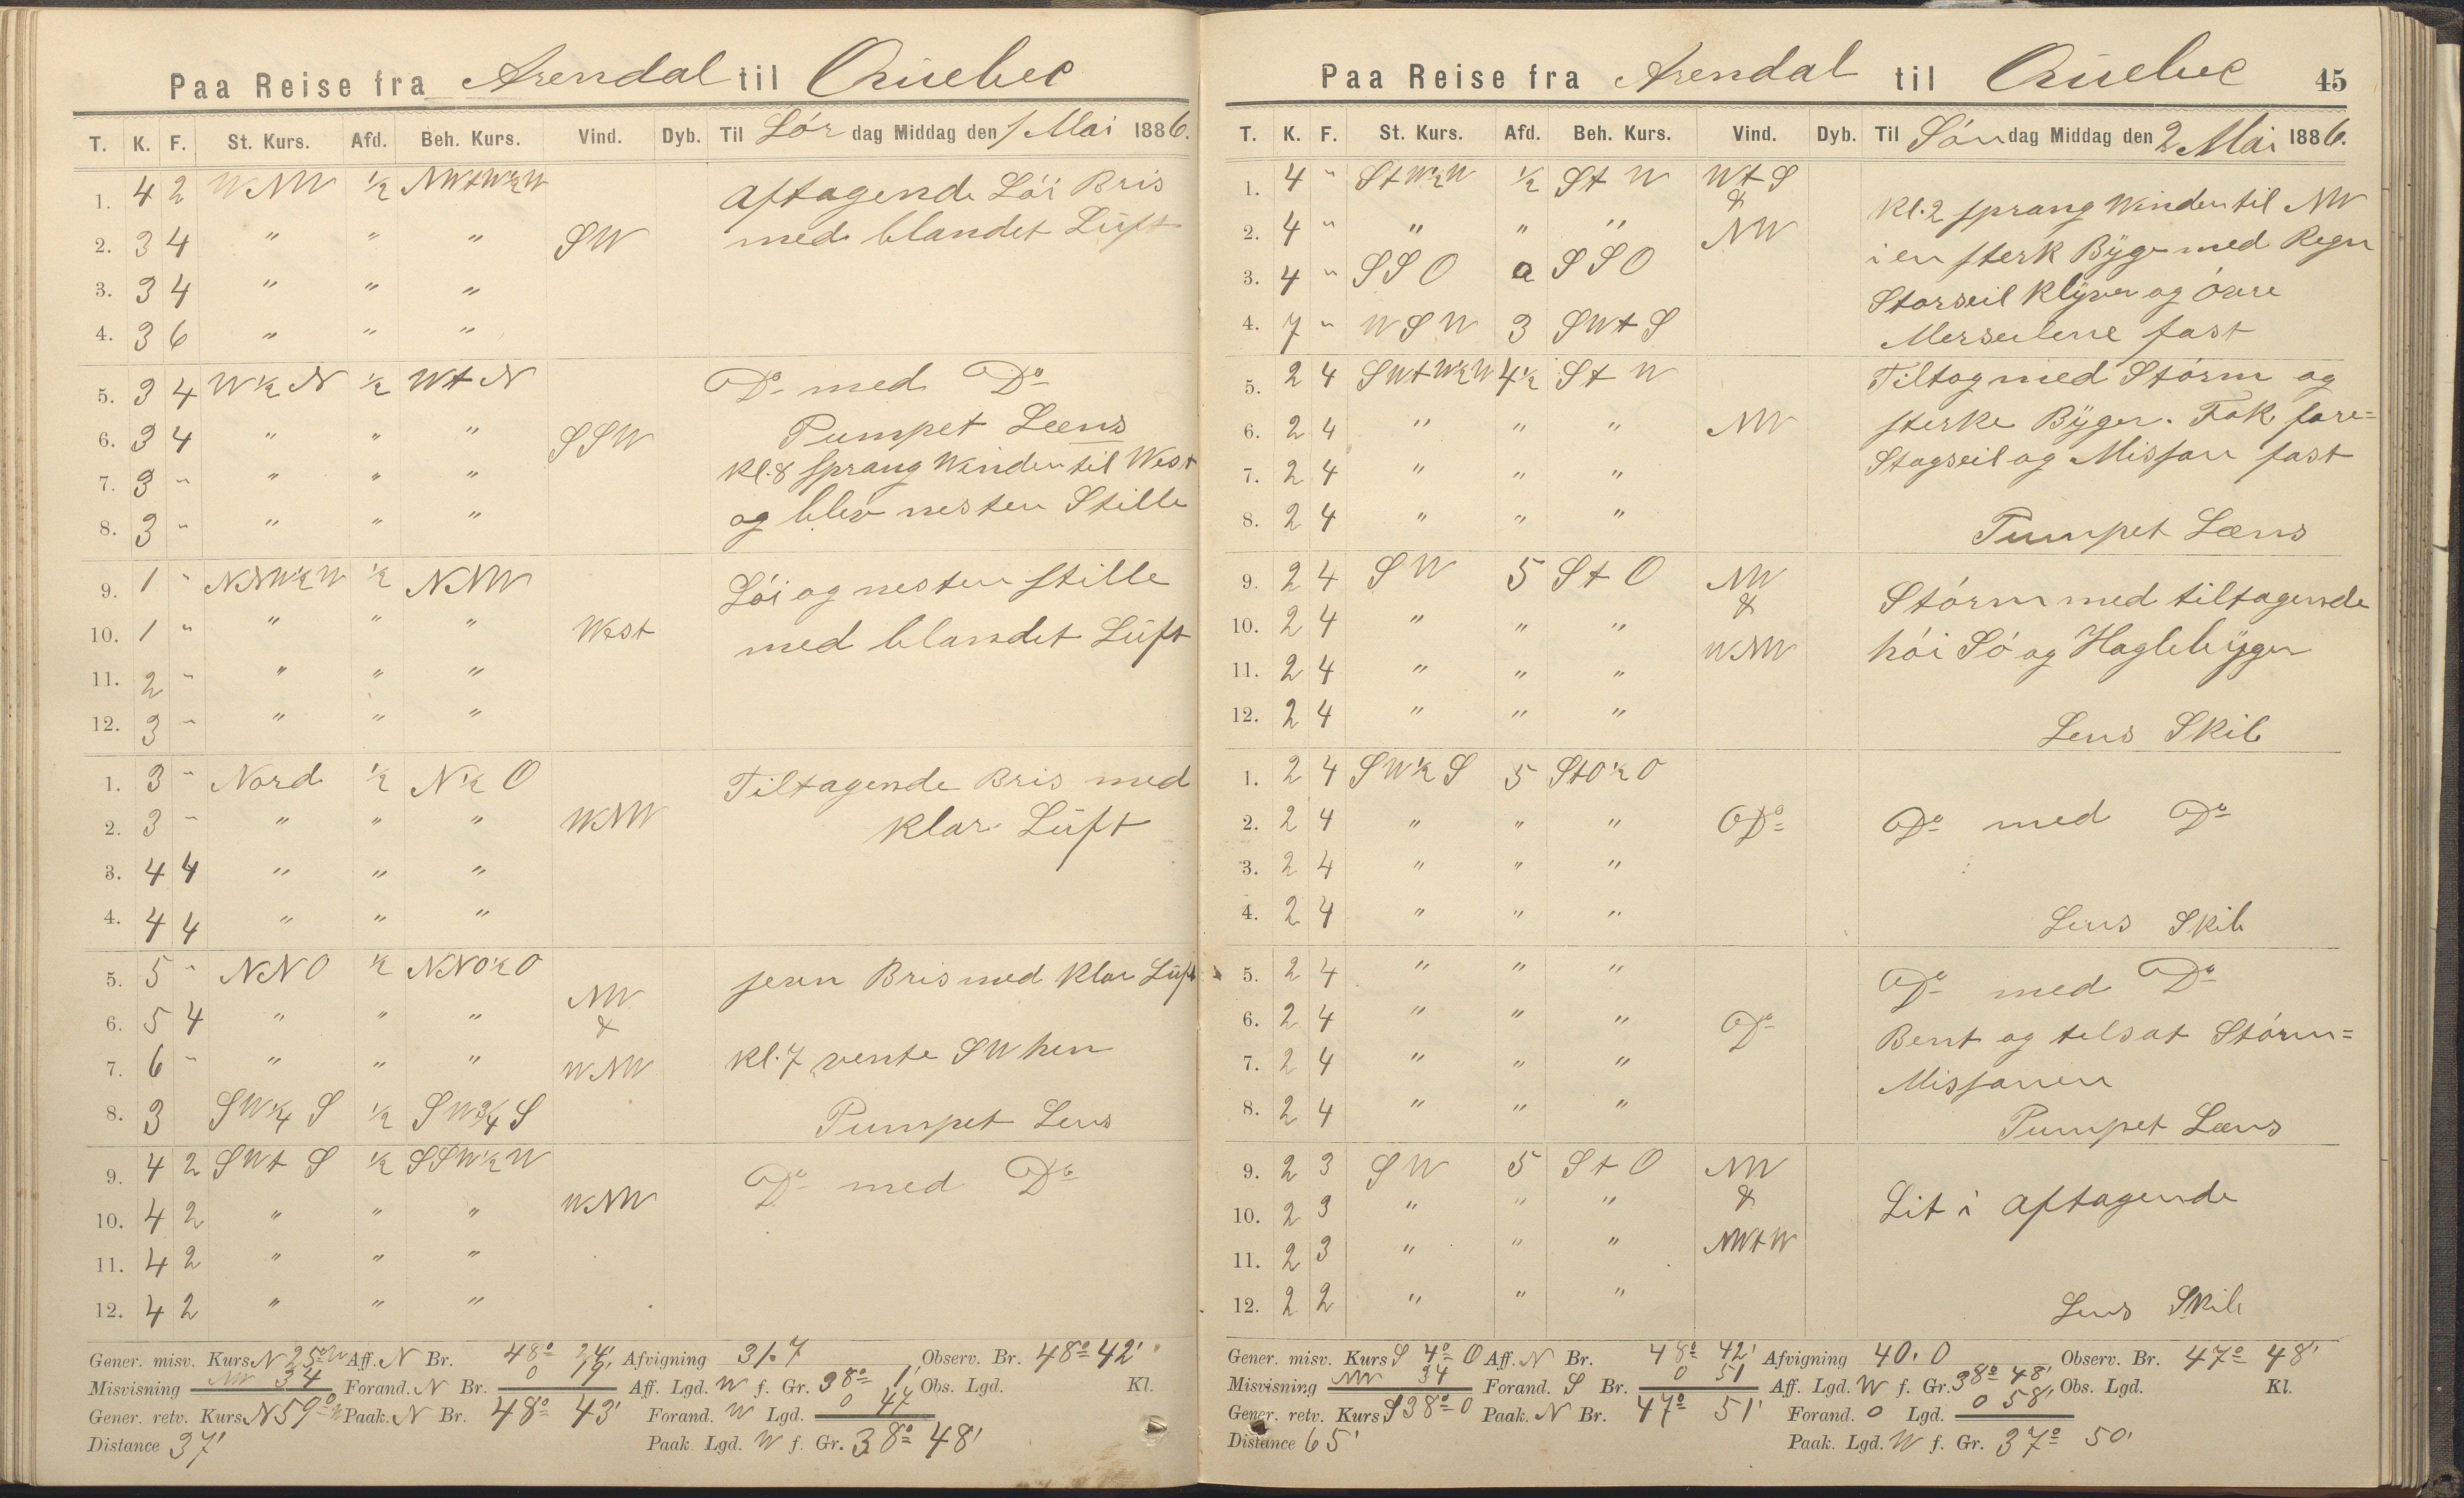 Paa Reise fra Arendal til Quebec
T. K. F. St. Kurs. Afd. Beh. Kurs. Vind. Dyb. Til Lör dag Middag den 1 Mai 1886.
1. 4 2 WNW ½ NWtW½W Aftagende Löi Bris
2. 3 4 " " " SW med blandet Luft
3. 3 4 " " "
4. 3 6 " " "
5. 3 4 W½N ½ WtN Do med Do
6. 3 4 " " " SSW Pumpet Læns
7. 3 " " " " Kl. 8 sprang Vinden til West
8. 3 " " " " og blev nesten Stille
9. 1 " NNW½W ½ NNW Löi og nesten stille
10. 1 " " " " West med blandet Luft
11. 2 " " " "
12. 3 " " " "
1. 3 " Nord ½ N½O Tiltagende Bris med
2. 3 " " " " WNW klar Luft
3. 4 4 " " "
4. 4 4 " " "
5. 5 " NNO ½ NNO½O NW jevn Bris med klar Luft
6. 5 4 " " " &
7. 6 " " " " WNW Kl. 7 vente SW hen
8. 3 SW¼S ½ SW¾S Pumpet Lens
9. 4 2 SWtS ½ SSW½W Do med Do
10. 4 2 " " " WNW
11. 4 2 " " "
12. 4 2 " " "
Gener. misv. Kurs N 25° W Aff. N Br. 48° 24' Afvigning 31.7 Observ. Br. 48° 42'
Misvisning NW 34 Forand. N Br. 0 19' Aff. Lgd. W f. Gr. 38° 1' Obs. Lgd. Kl.
Gener. retv. Kurs N 59° W Paak. N Br. 48° 43' Forand. W Lgd. 0 47
Distance 37' Paak. Lgd. W f. Gr. 38° 48'
Paa Reise fra Arendal til Quebec 45
T. K. F. St. Kurs. Afd. Beh. Kurs. Vind. Dyb. Til Sön dag Middag den 2 Mai 1886.
1. 4 " StW½W ½ StW WtS Kl. 2 sprang Vinden til NW
& 
2. 4 " " " " NW i en sterk Byge med Regn
3. 4 " SSO a SSO Storseil Klyver og övre
4. 7 " WSW 3 SWtS Merseilene fast
5. 2 4 SWtW½W 4½ StW Tiltog med Storm og
6. 2 4 " " " NW sterke Byger. Fok fore=
7. 2 4 " " " Stagseil og Missan fast
8. 2 4 " " " Pumpet Læns
9. 2 4 SW 5 StO NW Störm med tiltagende
&
10. 2 4 " " " WNW höi Sö og Haglebyger
11. 2 4 " " "
12. 2 4 " " " Lens Skib
1. 2 4 SW½S 5 StO½O
2. 2 4 " " " Do Do med Do
3. 2 4 " " "
4. 2 4 " " " Lens Skib
5. 2 4 " " " Do med Do
6. 2 4 " " " Do Bent og tilsat Störm=
7. 2 4 " " " Missanen
8. 2 4 " " " Pumpet Læns
9. 2 3 SW 5 StO NW
10. 2 3 " " " & Lit i aftagende
11. 2 3 " " " NWtW
12. 2 2 " " " Lens Skib
Gener. misv. Kurs S 4° O Aff. N Br. 48° 42' Afvigning 40.0 Observ. Br. 47° 48'
Misvisning NW 34 Forand. S Br. 0 51 Aff. Lgd. W f. Gr. 38° 48' Obs. Lgd. Kl.
Gener. retv. Kurs S 38° O Paak. N Br. 47° 51' Forand. O Lgd. 0 58'
Distance 65' Paak. Lgd. W f. Gr. 37° 50'